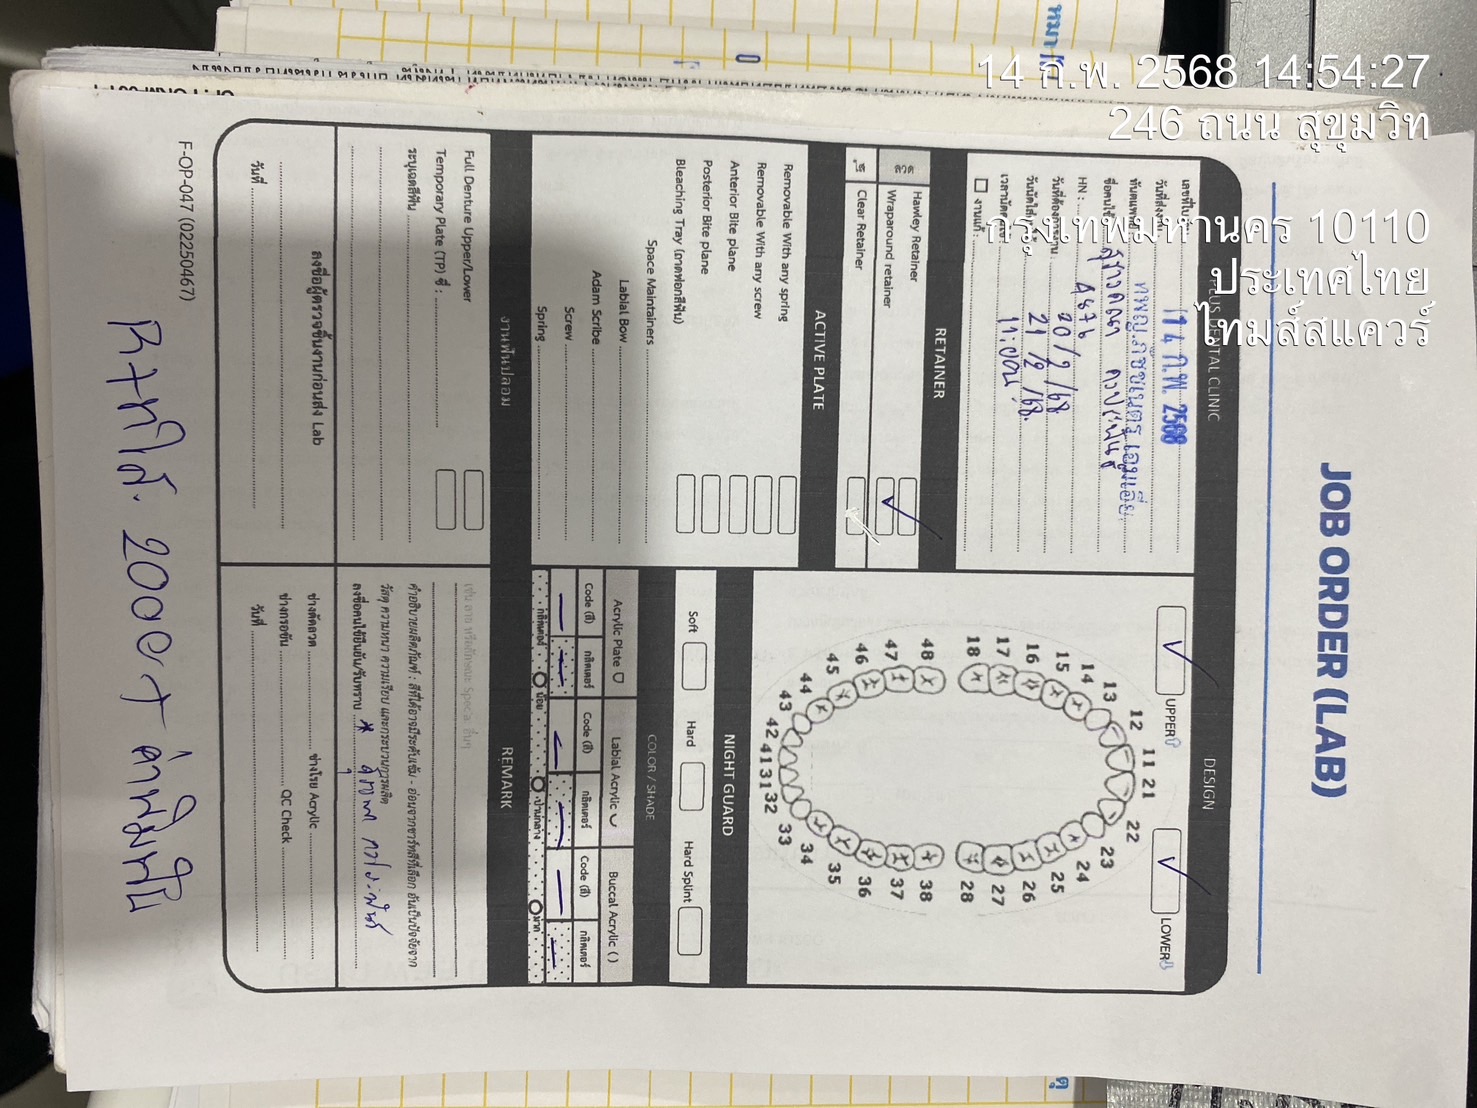 14 ก.พ. 2568 14:54:27
246 ถนน สุขุมวิท
กรุงเทพมหานคร 10110
ประเทศไทย
ไทมส์สแควร์
JOB ORDER (LAB)
PLUS DENTAL CLINIC
เลขที่ใบ
วันที่ส่ง 14 ก.พ. 2568
ทันตแพทย์
ชื่อคนไข้
HN : 4876
วันที่ต้องการงาน : 20/2/68
วันนัดใส่ 21/2/68.
เวลานัด 11:00น.
งานแก้ :
RETAINER
ลวด
Hawley Retainer
Wraparound retainer ✓
ใส
Clear Retainer
ACTIVE PLATE
Removable With any spring
Removable With any screw
Anterior Bite plane
Posterior Bite plane
Bleaching Tray (ถาดฟอกสีฟัน)
Space Maintainers
Labial Bow
Adam Scribe
Screw
Spring
งานฟันปลอม
Full Denture Upper/Lower
Temporary Plate (TP) ซี่ :
ระบุเฉดสีฟัน
DESIGN
✓ UPPER
✓ LOWER
18 17 16 15 14 13 12 11 21 22 23 24 25 26 27 28
48 47 46 45 44 43 42 41 31 32 33 34 35 36 37 38
NIGHT GUARD
Soft Hard Hard Splint
COLOR / SHADE
Acrylic Plate Labial Acrylic Buccal Acrylic ( )
Code (สี) กลิตเตอร์ Code (สี) กลิตเตอร์ Code (สี) กลิตเตอร์
กลิตเตอร์ น้อย ปานกลาง มาก
REMARK
คำอธิบายผลิตภัณฑ์ : สีที่ได้อาจมีระดับเข้ม - อ่อนจากชาร์ทสีที่เลือก อันเป็นปัจจัยจาก
วัสดุ ความหนา ความเรียบ และกระบวนการผลิต
ลงชื่อคนไข้ยืนยัน/รับทราบ
ลงชื่อผู้ตรวจชิ้นงานก่อนส่ง Lab
วันที่
ช่างดัดลวด ช่างโรย Acrylic
ช่างกรอขัด QC Check
วันที่
F-OP-047 (02250467)